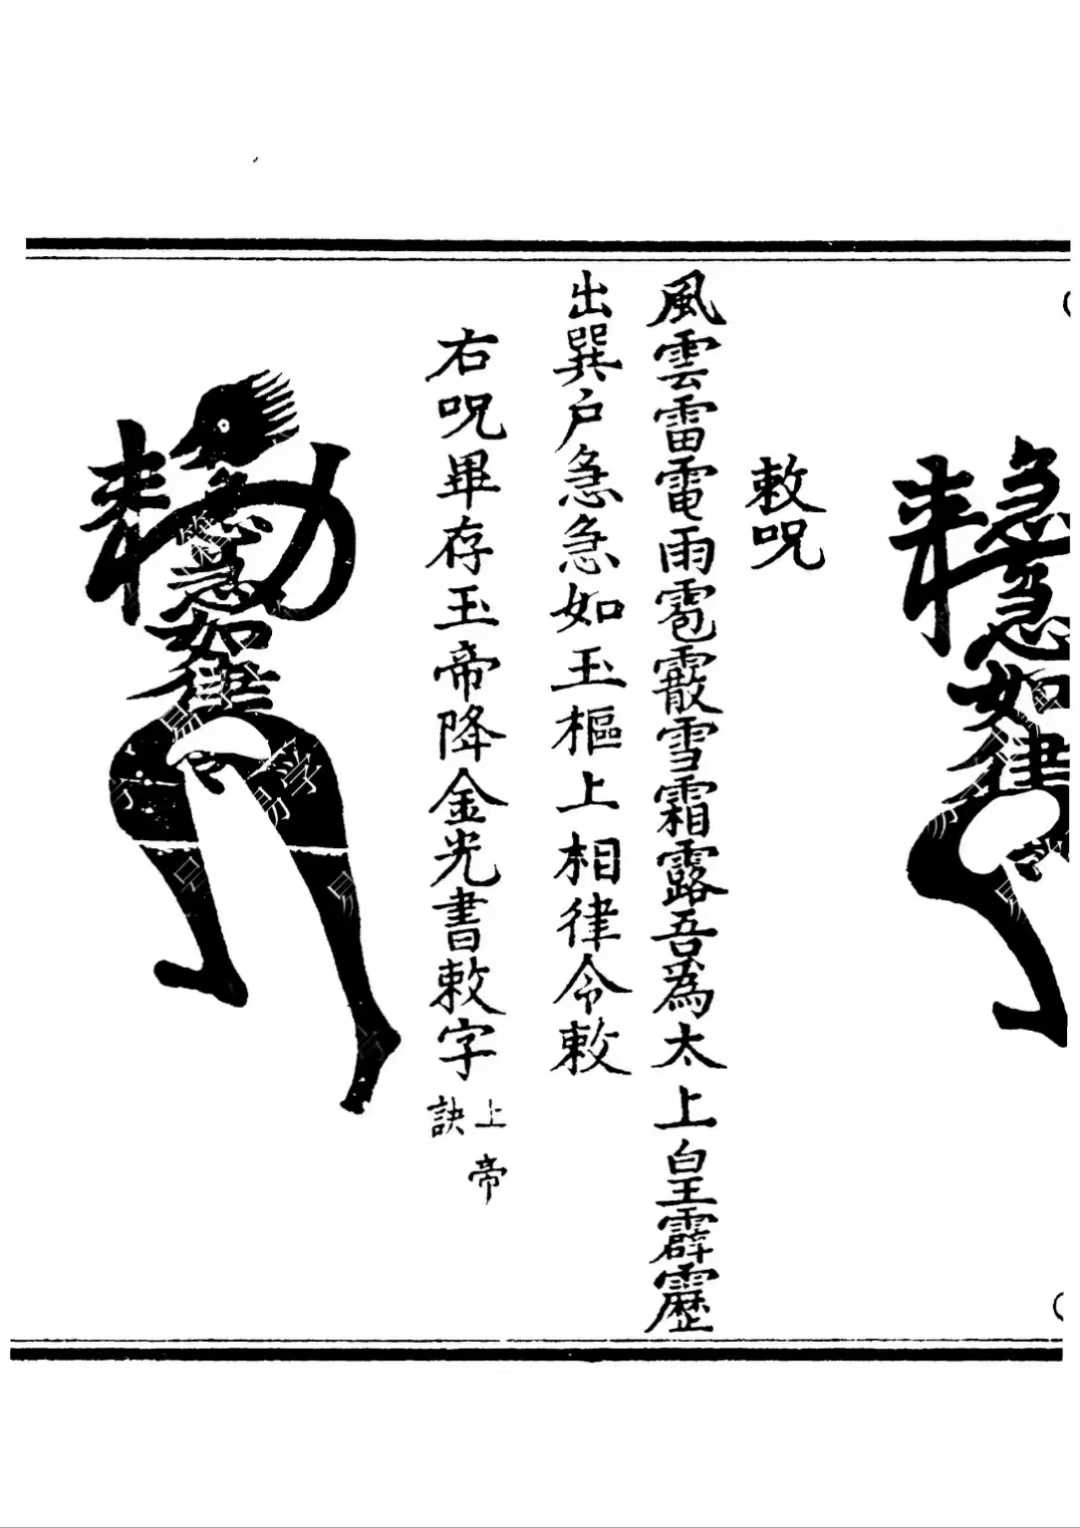 急急如律
敕咒
風雲雷電雨雹霰雪霜露吾為太上皇霹靂
出巽戶急急如玉樞上相律令敕
右咒畢存玉帝降金光書敕字上帝訣
勑急急如律令